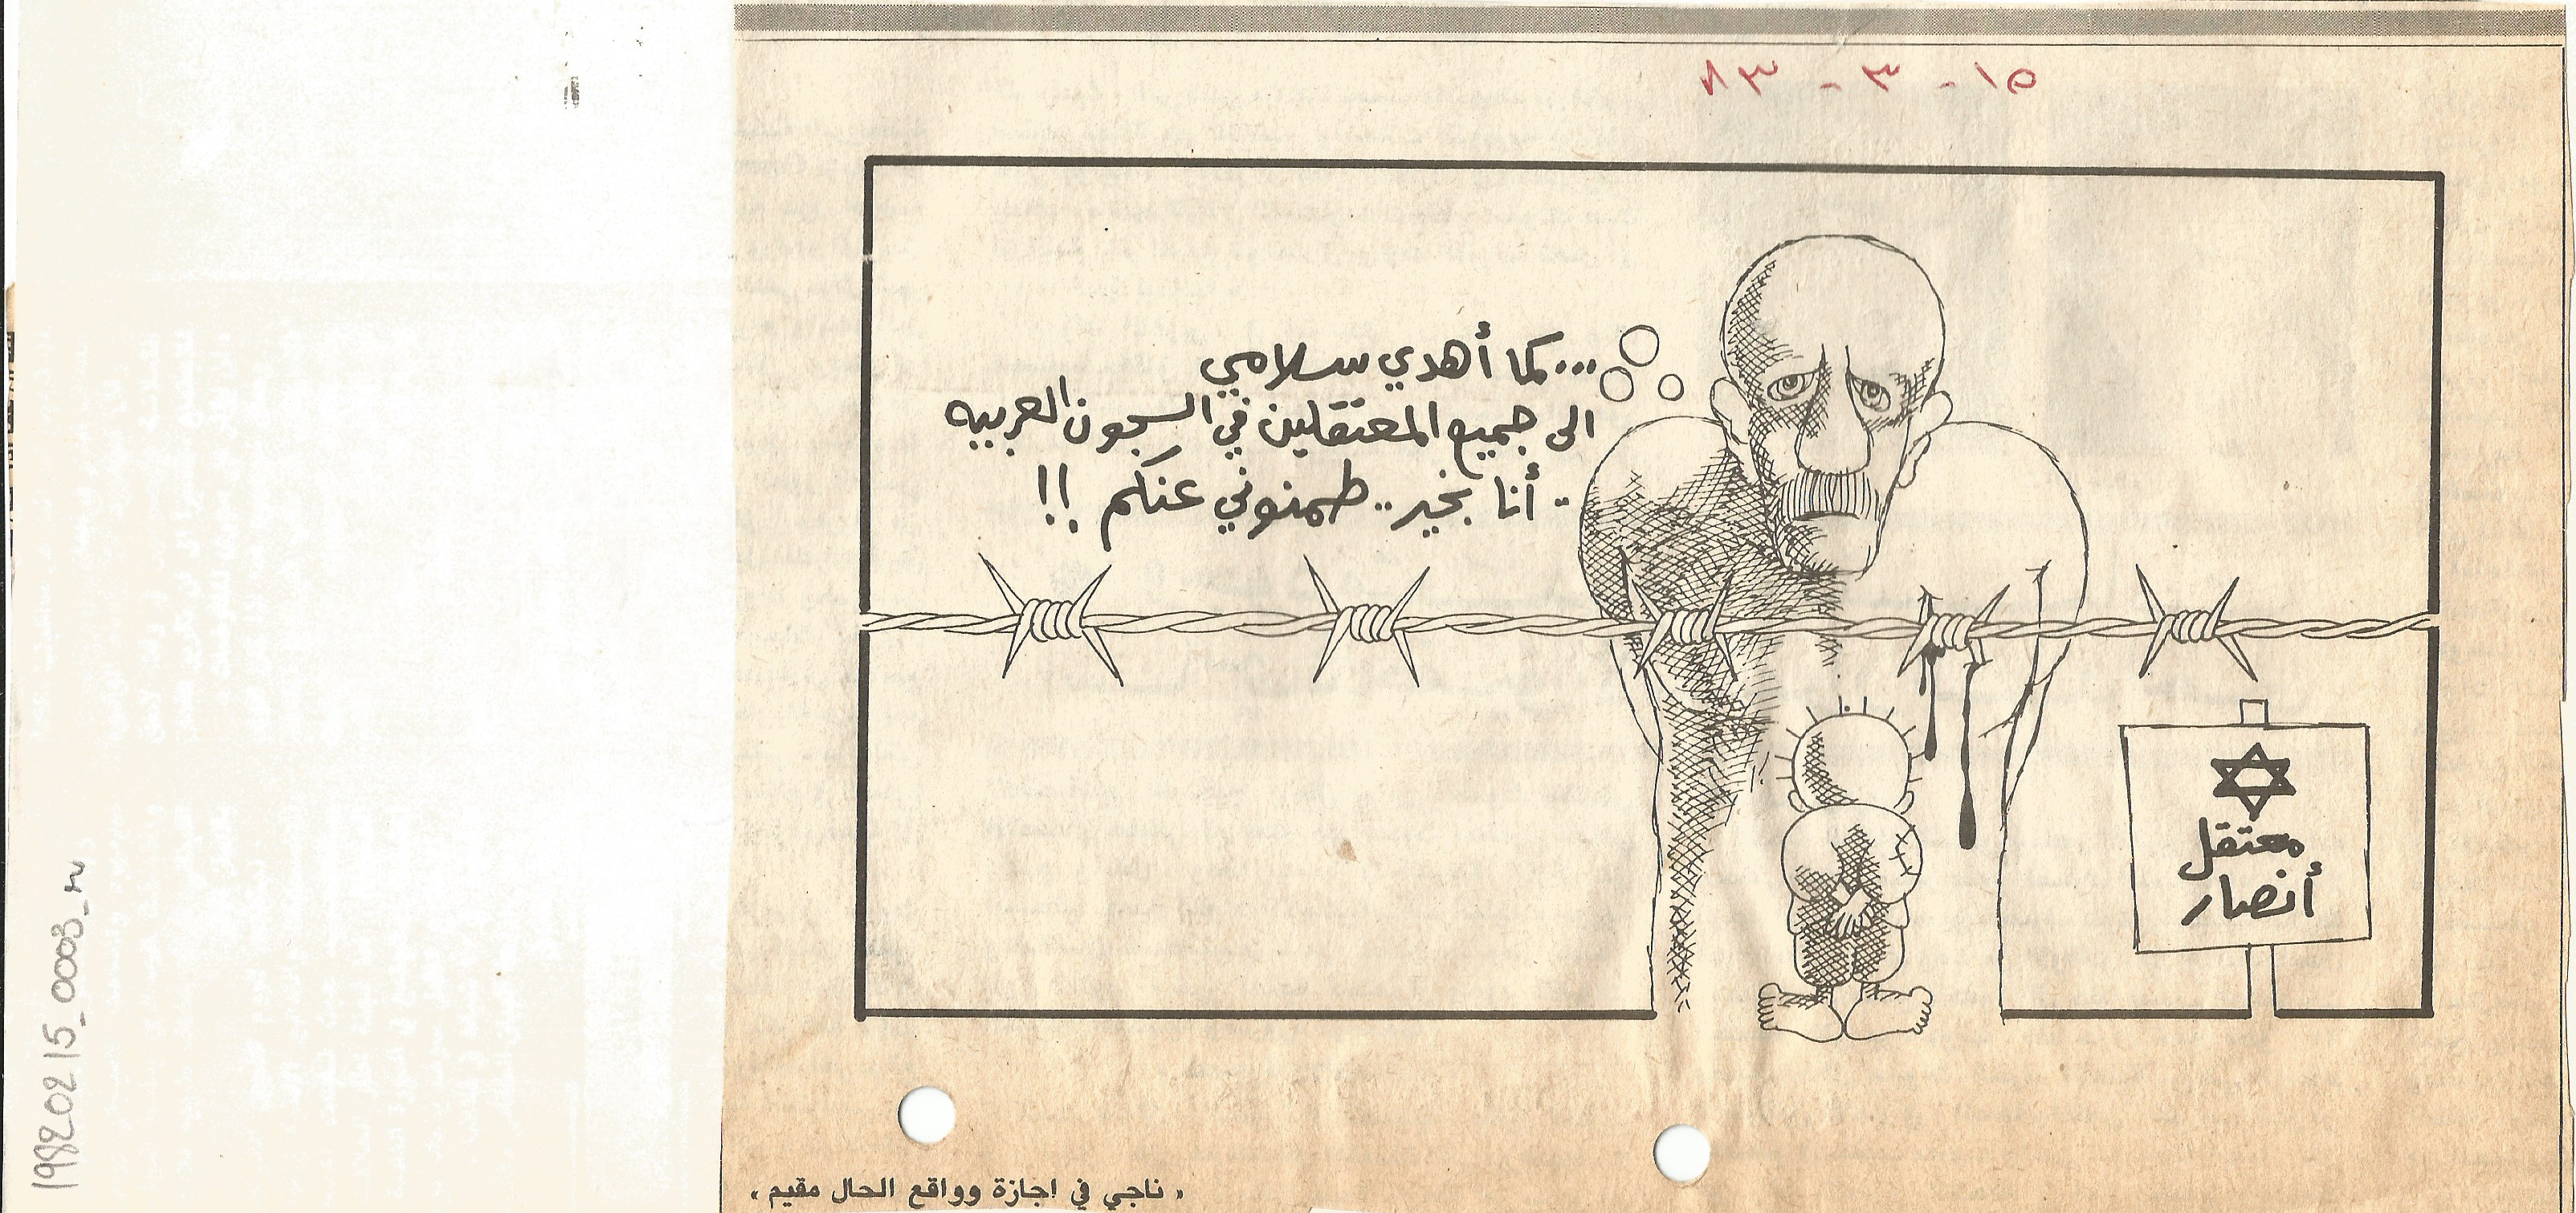 ١٥ - ٣ - ٨٣
... كما أهدي سلامي
الى جميع المعتقلين في السجون العربيه
.. أنا بخير .. طمنوني عنكم !!
معتقل
أنصار
، ناجي في اجازة وواقع الحال مقيم ،
19820215_0003_n